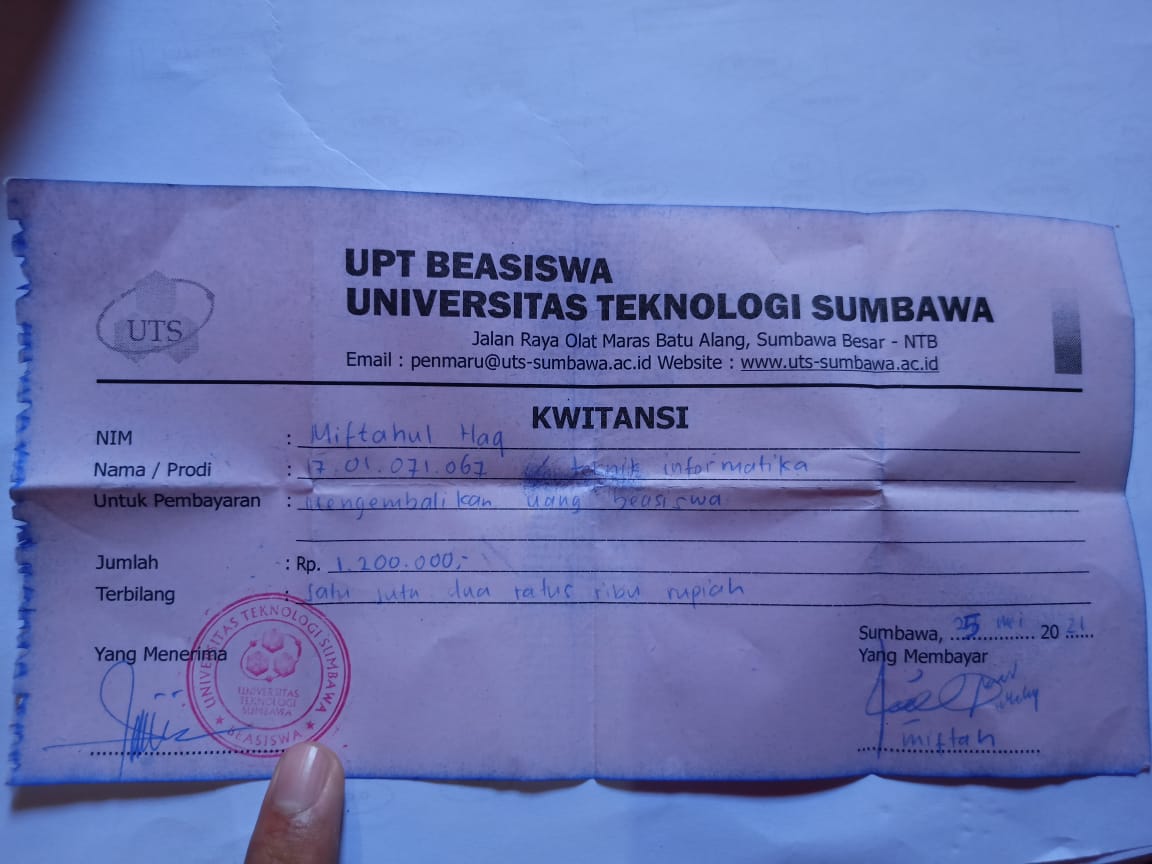 UTS
UPT BEASISWA
UNIVERSITAS TEKNOLOGI SUMBAWA
Jalan Raya Olat Maras Batu Alang, Sumbawa Besar - NTB
Email : penmaru@uts-sumbawa.ac.id Website : www.uts-sumbawa.ac.id
KWITANSI
NIM : Miftahul Haq
Nama / Prodi : 17.01.071.067 teknik informatika
Untuk Pembayaran : mengembalikan uang beasiswa
Jumlah : Rp. 1.200.000,-
Terbilang : satu juta dua ratus ribu rupiah
Sumbawa, 25 Mei 2021
Yang Menerima
Yang Membayar
UNIVERSITAS TEKNOLOGI SUMBAWA
UNIVERSITAS
TEKNOLOGI
SUMBAWA
★ BEASISWA ★
miftah